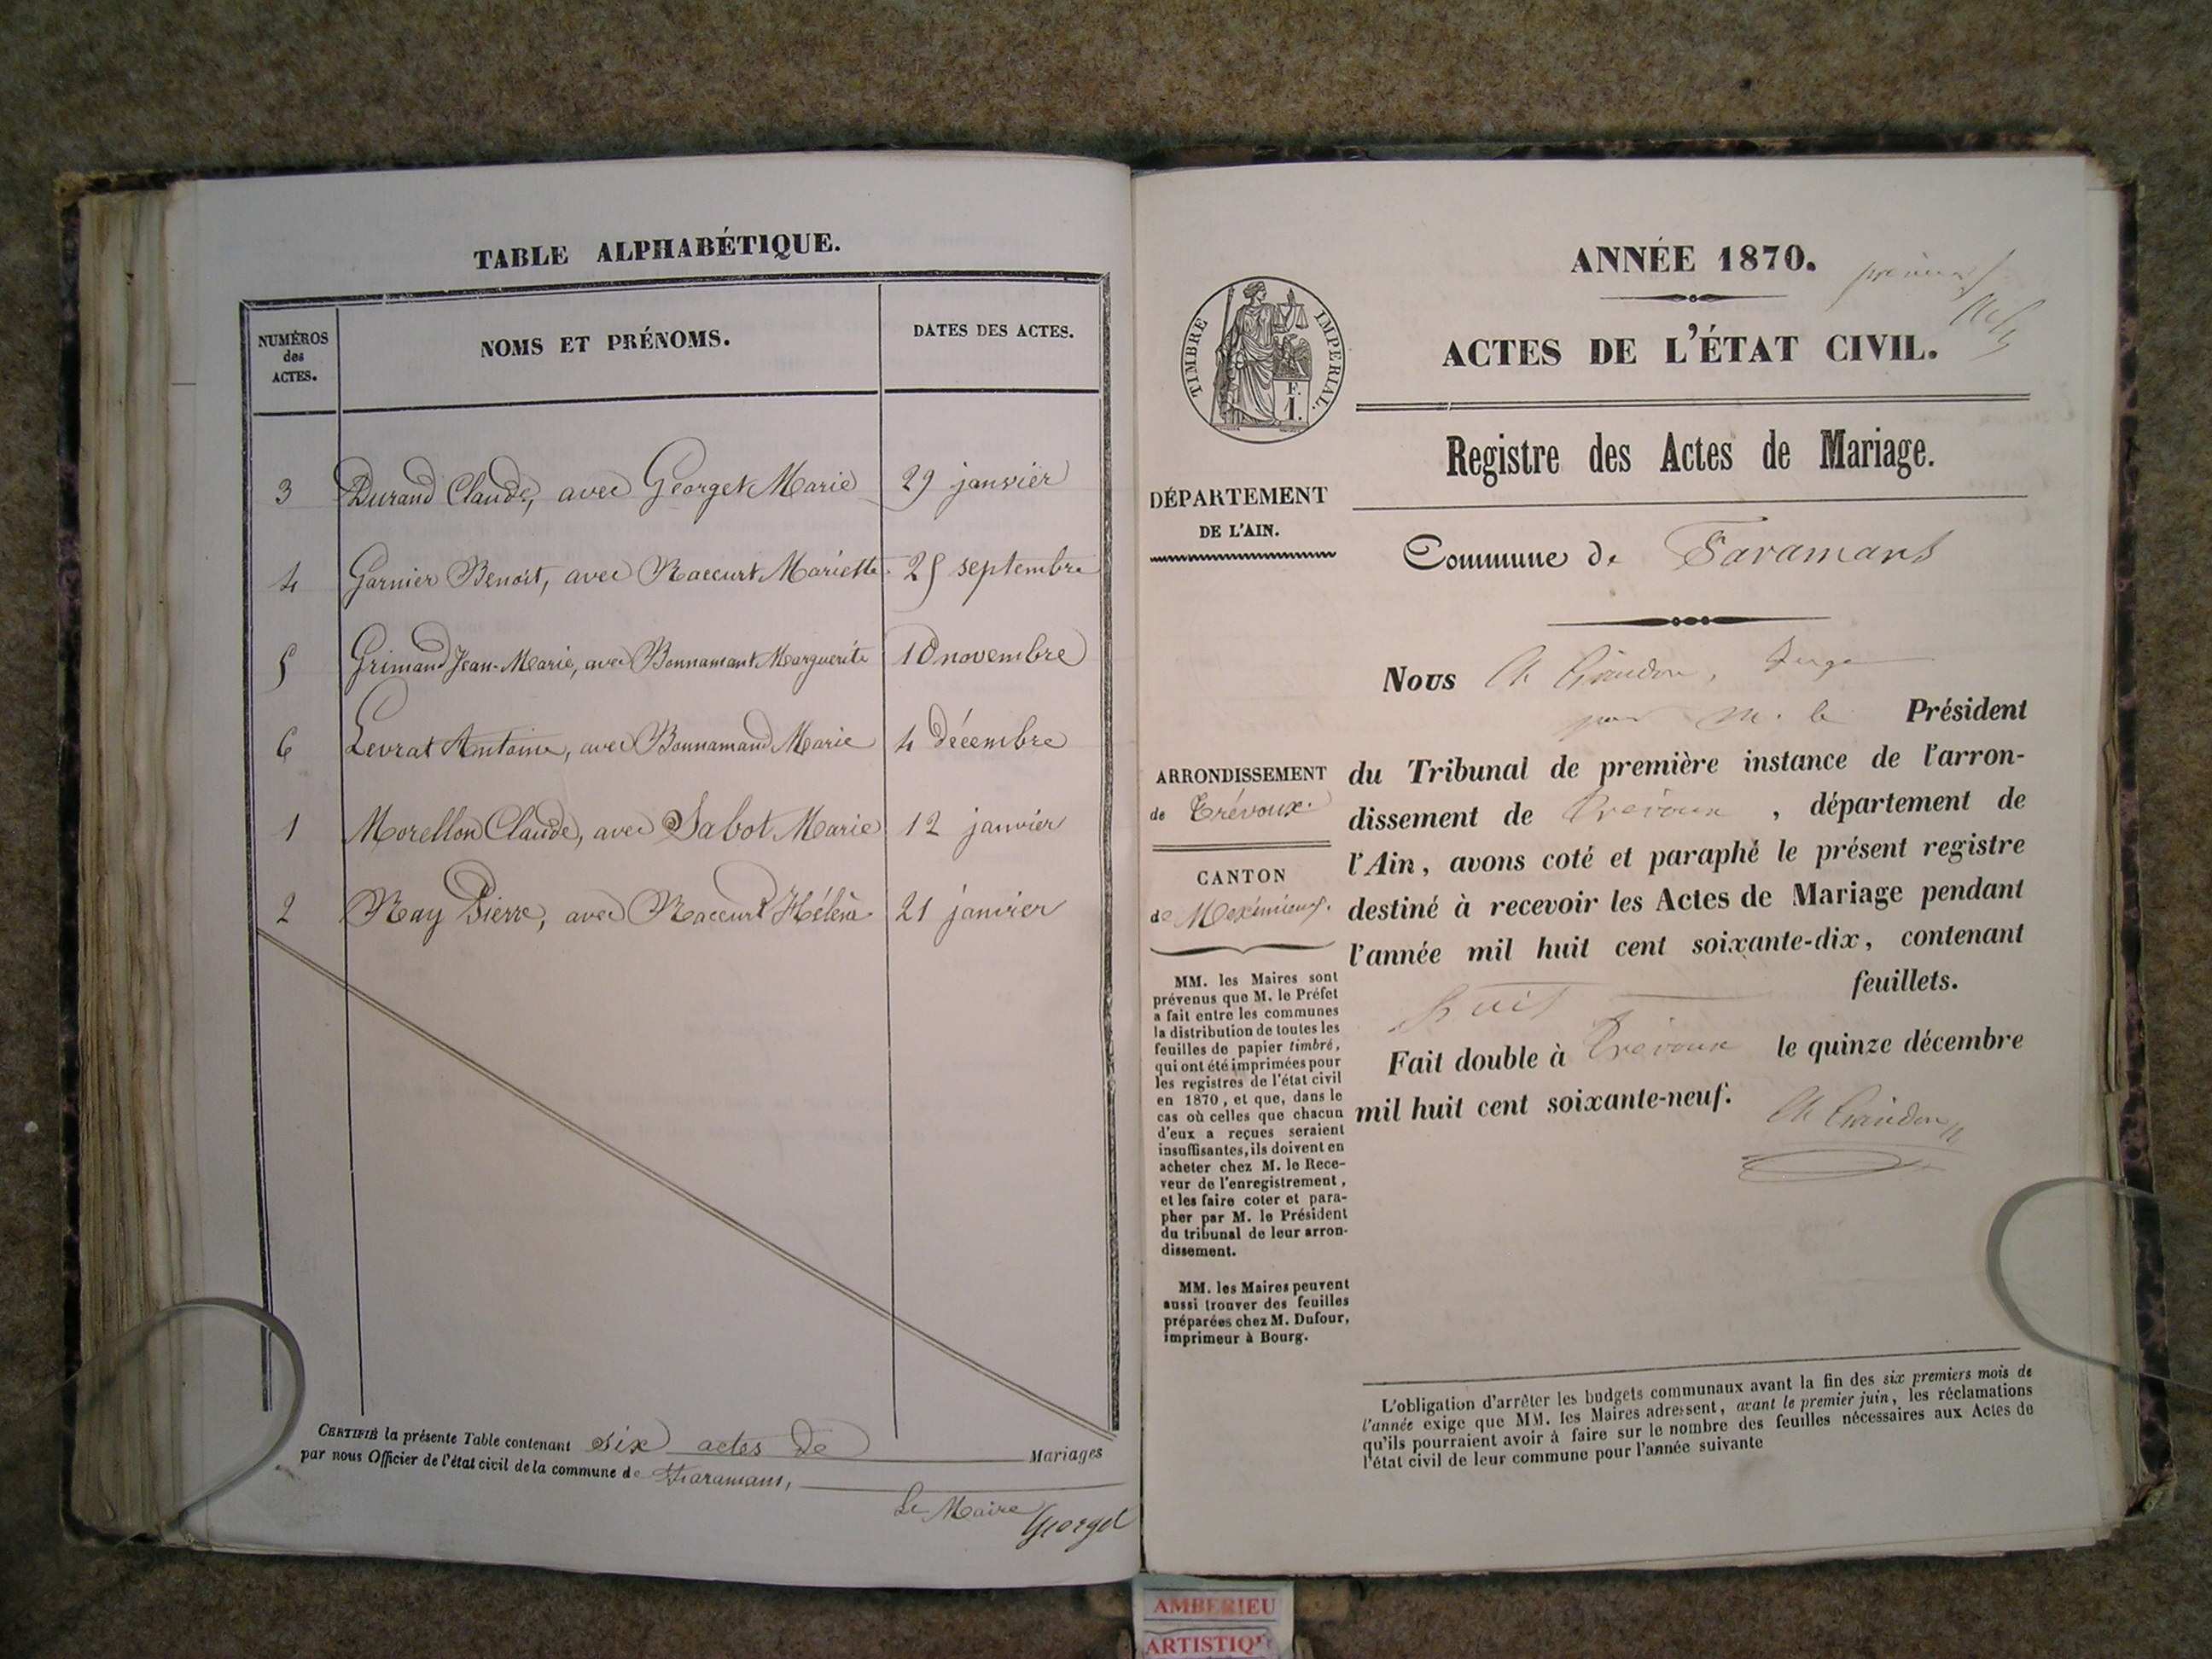 TABLE ALPHABÉTIQUE.
NUMÉROS
des
ACTES.
NOMS ET PRÉNOMS.
DATES DES ACTES.
3 Durand Claude, avec Georget Marie 29 janvier
4 Garnier Benoit, avec Raccurt Mariette 25 septembre
5 Grimand Jean-Marie, avec Bonnamant Marguerite 10 novembre
6 Levrat Antoine, avec Bonnamand Marie 4 décembre
1 Morellon Claude, avec Sabot Marie 12 janvier
2 Ray Pierre, avec Raccurt Hélène 21 janvier
CERTIFIÉ la présente Table contenant six actes de Mariages
par nous Officier de l'état civil de la commune de Faramans,
Le Maire
Georget
ANNÉE 1870.
premier
ACTES DE L'ÉTAT CIVIL.
TIMBRE IMPÉRIAL.
F.
1.
Registre des Actes de Mariage.
DÉPARTEMENT
DE L'AIN.
Commune de Faramans
Nous Ch Graudon, Juge
pour M. le Président
ARRONDISSEMENT
de Trévoux.
CANTON
de Meximieux.
du Tribunal de première instance de l'arron-
dissement de Trévoux, département de
l'Ain, avons coté et paraphé le présent registre
destiné à recevoir les Actes de Mariage pendant
l'année mil huit cent soixante-dix, contenant
huit feuillets.
Fait double à Trévoux le quinze décembre
mil huit cent soixante-neuf.
Ch Graudon
MM. les Maires sont
prévenus que M. le Préfet
a fait entre les communes
la distribution de toutes les
feuilles de papier timbré,
qui ont été imprimées pour
les registres de l'état civil
en 1870, et que, dans le
cas où celles que chacun
d'eux a reçues seraient
insuffisantes, ils doivent en
acheter chez M. le Rece-
veur de l'enregistrement,
et les faire coter et para-
pher par M. le Président
du tribunal de leur arron-
dissement.
MM. les Maires peuvent
aussi trouver des feuilles
préparées chez M. Dufour,
imprimeur à Bourg.
L'obligation d'arrêter les budgets communaux avant la fin des six premiers mois de
l'année exige que MM. les Maires adressent, avant le premier juin, les réclamations
qu'ils pourraient avoir à faire sur le nombre des feuilles nécessaires aux Actes de
l'état civil de leur commune pour l'année suivante
AMBERIEU
ARTISTIQU